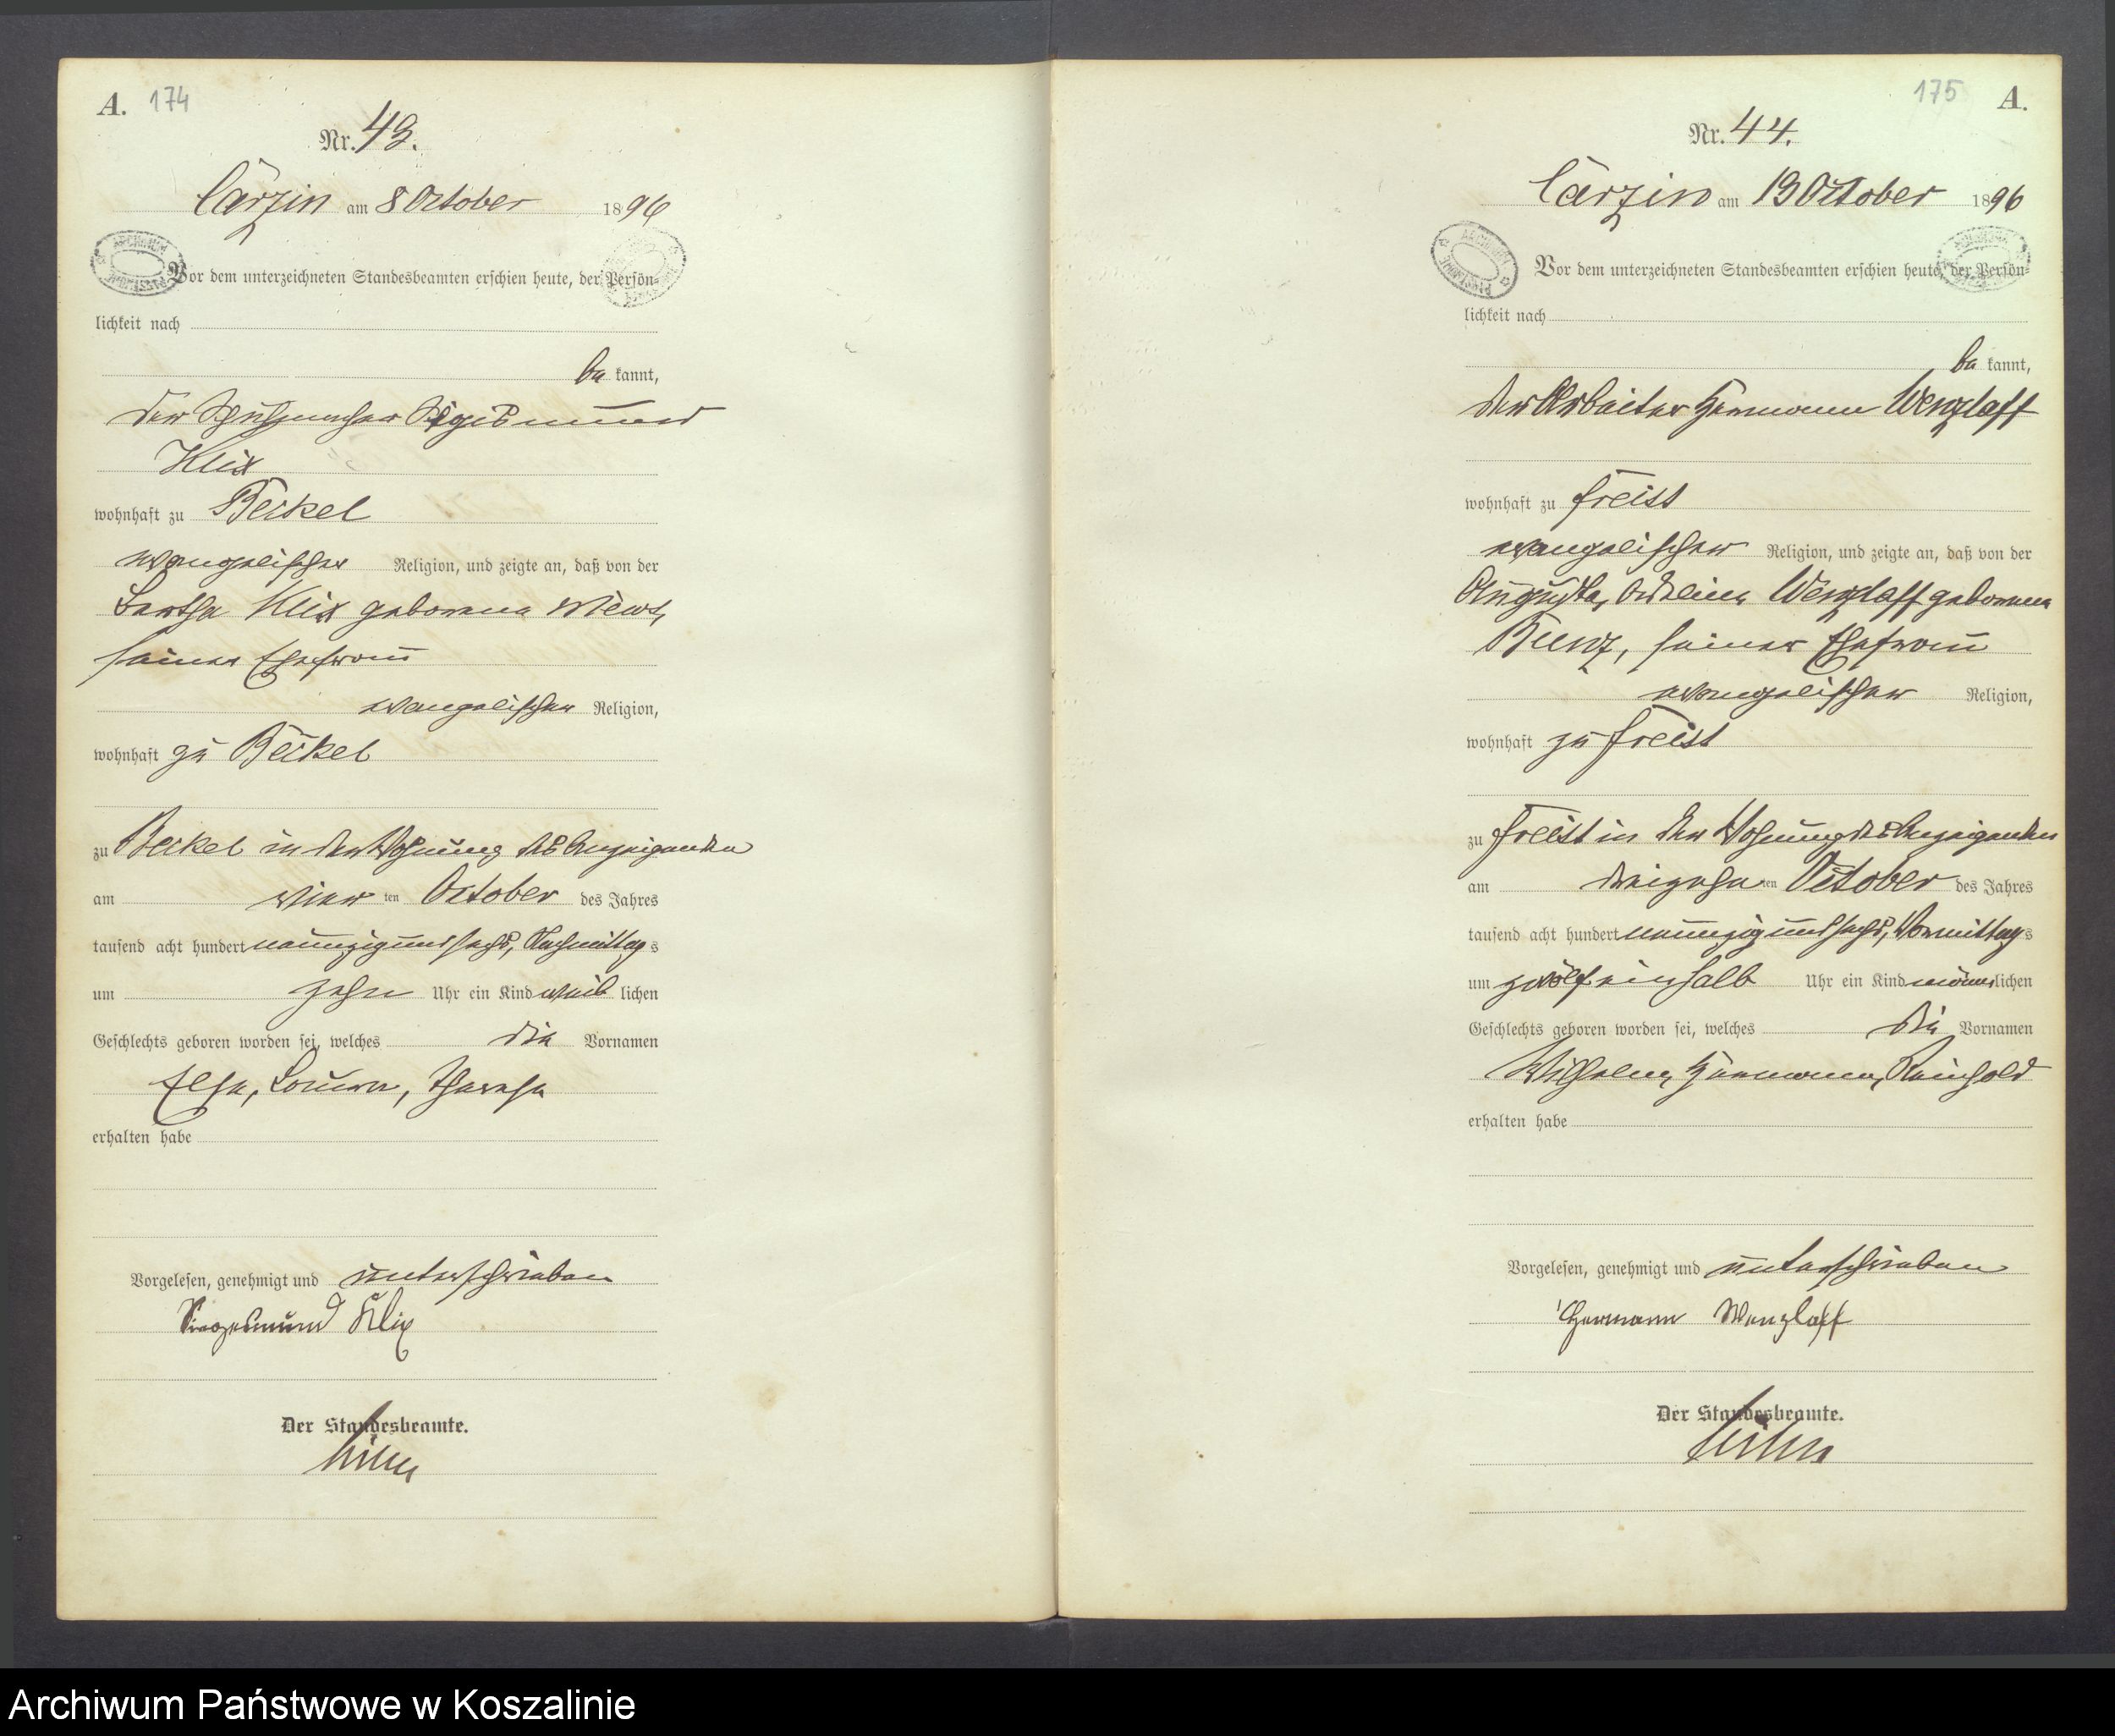 A. 174
Nr. 43.
Carzin am 8 October 1896
Vor dem unterzeichneten Standesbeamten erschien heute, der Persön-
lichkeit nach
be kannt,
der Schuhmacher Sigismund
Klix
wohnhaft zu Beckel
evangelischer Religion, und zeigte an, daß von der
Bertha Klix geborene Mews,
seiner Ehefrau
evangelischer Religion,
wohnhaft zu Beckel
zu Beckel in der Wohnung des Anzeigenden
am vier ten October des Jahres
tausend acht hundert neunzig und sechs, Nachmittag s
um zehn Uhr ein Kind weib lichen
Geschlechts geboren worden sei, welches die Vornamen
Else, Louise, Therese
erhalten habe
Vorgelesen, genehmigt und unterschrieben
Klix
Der Standesbeamte.
175 A.
Nr. 44.
Carzin am 13 October 1896
Vor dem unterzeichneten Standesbeamten erschien heute, der Persön-
lichkeit nach
be kannt,
der Arbeiter Hermann Wenzlaff
wohnhaft zu Freist
evangelischer Religion, und zeigte an, daß von der
Auguste, Wenzlaff geborene
seiner Ehefrau
evangelischer Religion,
wohnhaft zu Freist
zu Freist in der Wohnung des Anzeigenden
am dreizehn ten October des Jahres
tausend acht hundert neunzig und sechs, Vormittag s
um zwölf einhalb Uhr ein Kind männ lichen
Geschlechts geboren worden sei, welches die Vornamen
Wilhelm, Hermann, Reinhold
erhalten habe
Vorgelesen, genehmigt und unterschrieben
Hermann Wenzlaff
Der Standesbeamte.
Archiwum Państwowe w Koszalinie